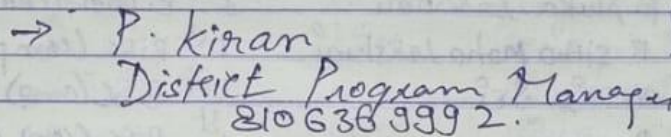 → P. Kiran
District Program Manager
810 636 9992.